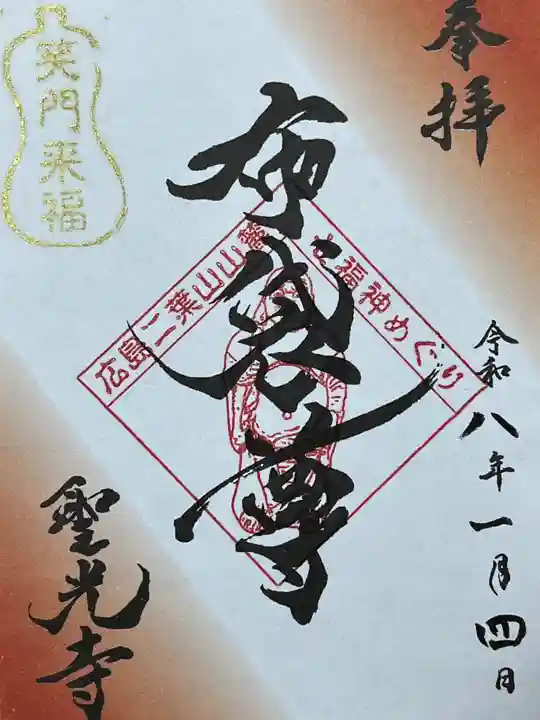 奉拝
布袋尊
令和八年一月四日
聖光寺
笑門来福
広島二葉山山麓
七福神めぐり